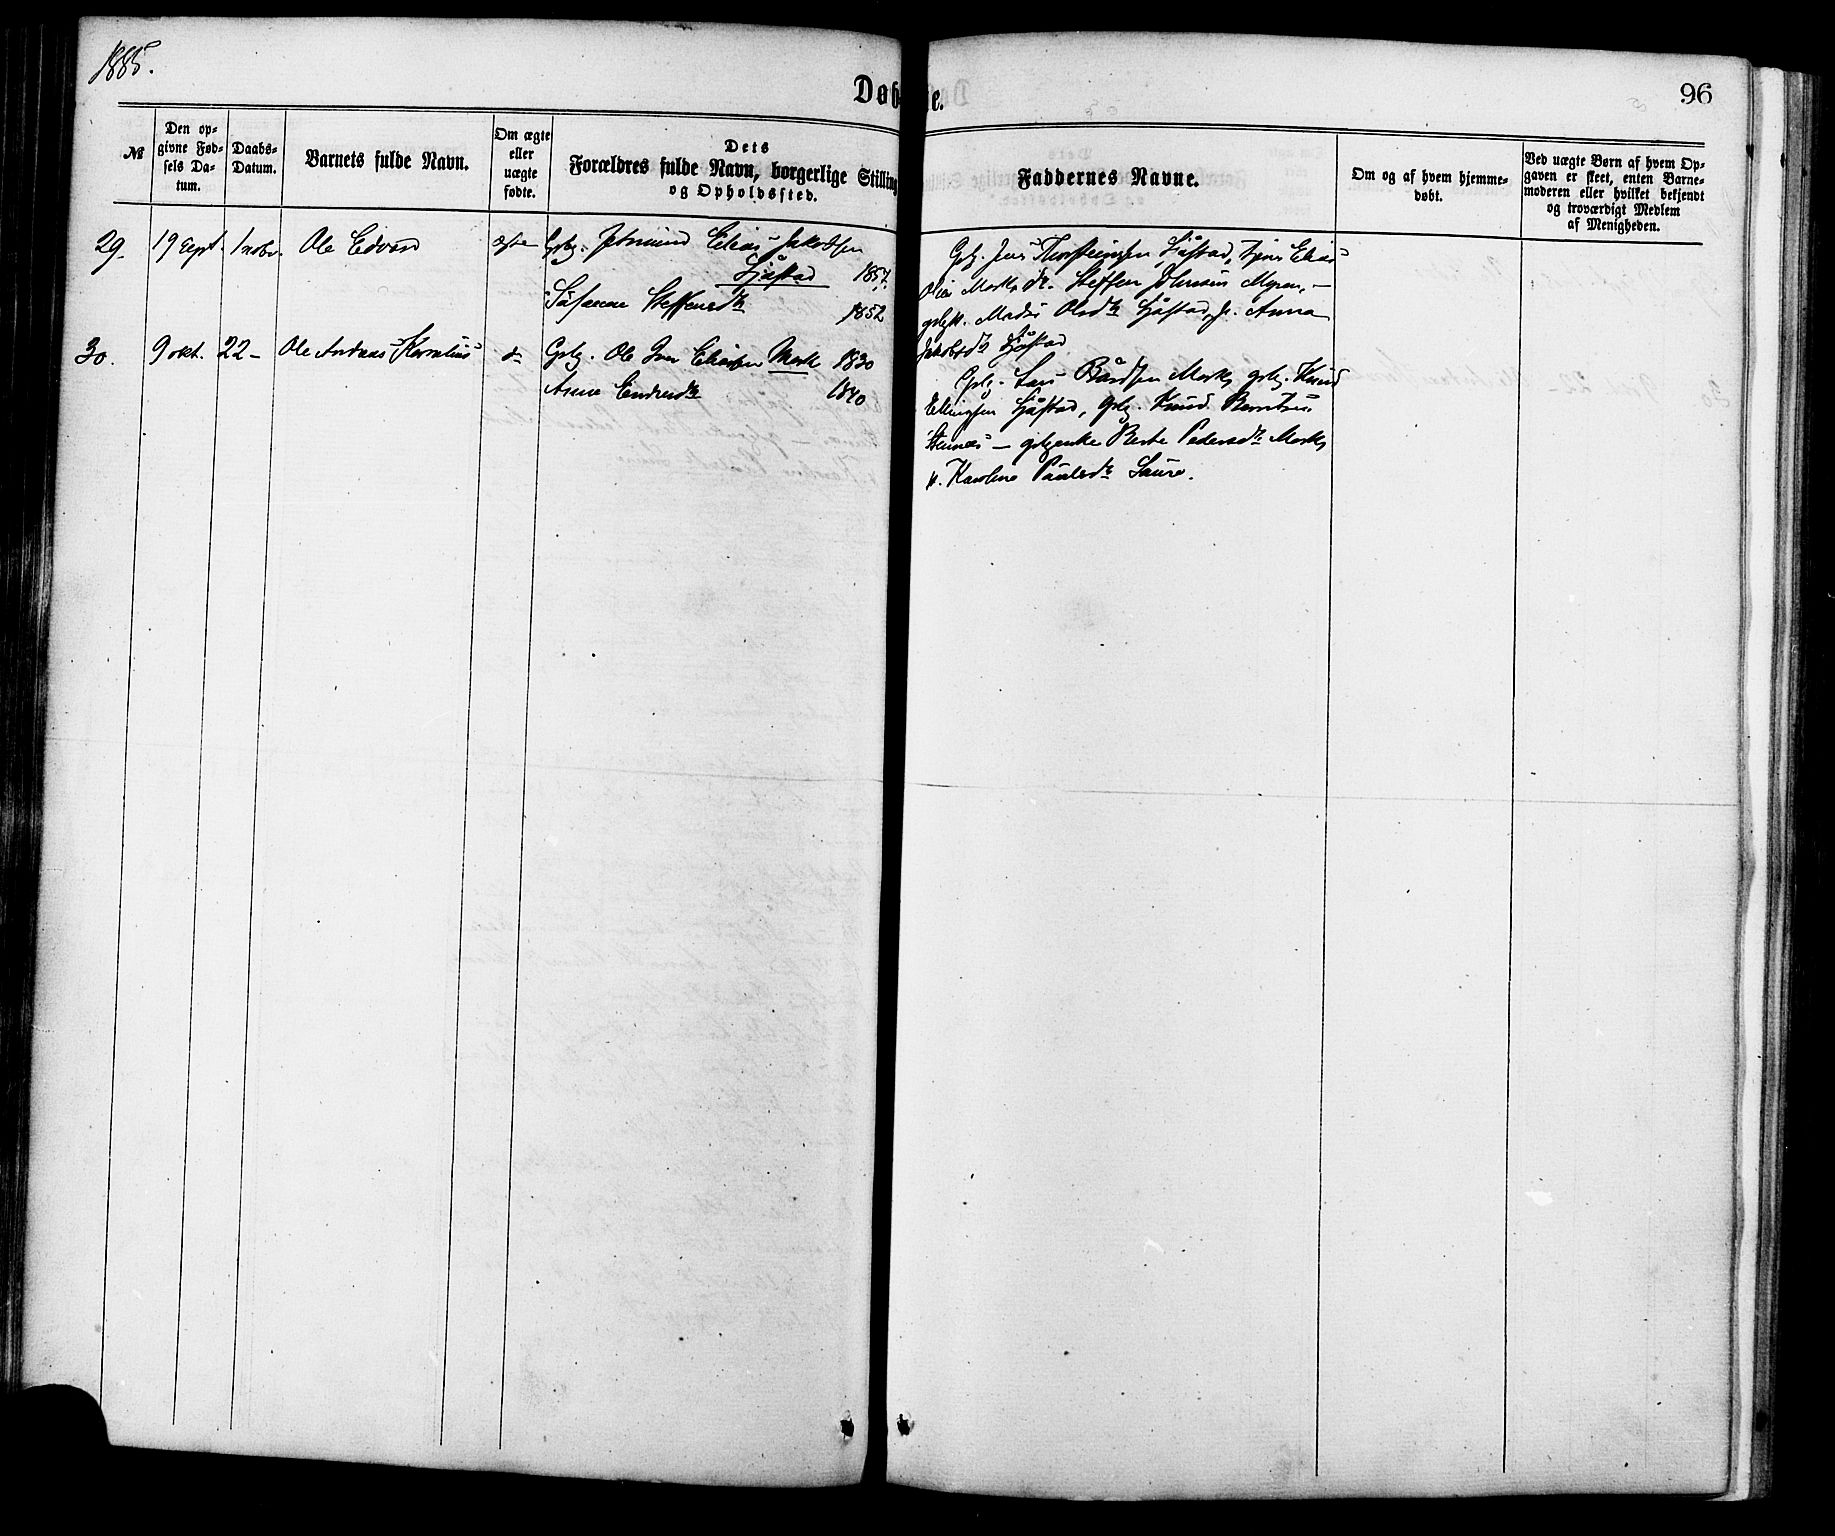 1885.
Døbte.
96
No
Den opgivne Fødsels Datum.
Daabs-Datum.
Barnets fulde Navn.
Om ægte eller uægte fødte.
Dets
Forældres fulde Navn, borgerlige Stilling
og Opholdssted.
Faddernes Navne.
Om og af hvem hjemmedøbt.
Ved uægte Børn af hvem Opgaven er skeet, enten Barnemoderen eller hvilket bekjendt og troværdigt Medlem af Menigheden.
29. 19 Sept. 1 novbr. Ole Edvard ægte Gbg. Jetmund Elias Jakobsen
Sjåstad 1857.
Susanne Steffensdtr 1852
Gbg. Jens Thorsteinsen Sjåstad, Elias
Olsen Mork, Steffen Johnsen Myren, —
Olsdtr Sjåstad, p. Anna
Jakobsdtr Sjåstad
30. 9 okt. 22 — Ole Andreas Kornelius do Gbg. Ole Iver Eliassen Mork 1830
Anne Endresdtr 1840
Gbg. Lars Bårdsen Mork, gbg. Knud
Ellingsen Sjåstad, Gbg. Knud Berntsen
— Berte Pedersdtr Mork,
p. Karoline Paulsdtr Saure.